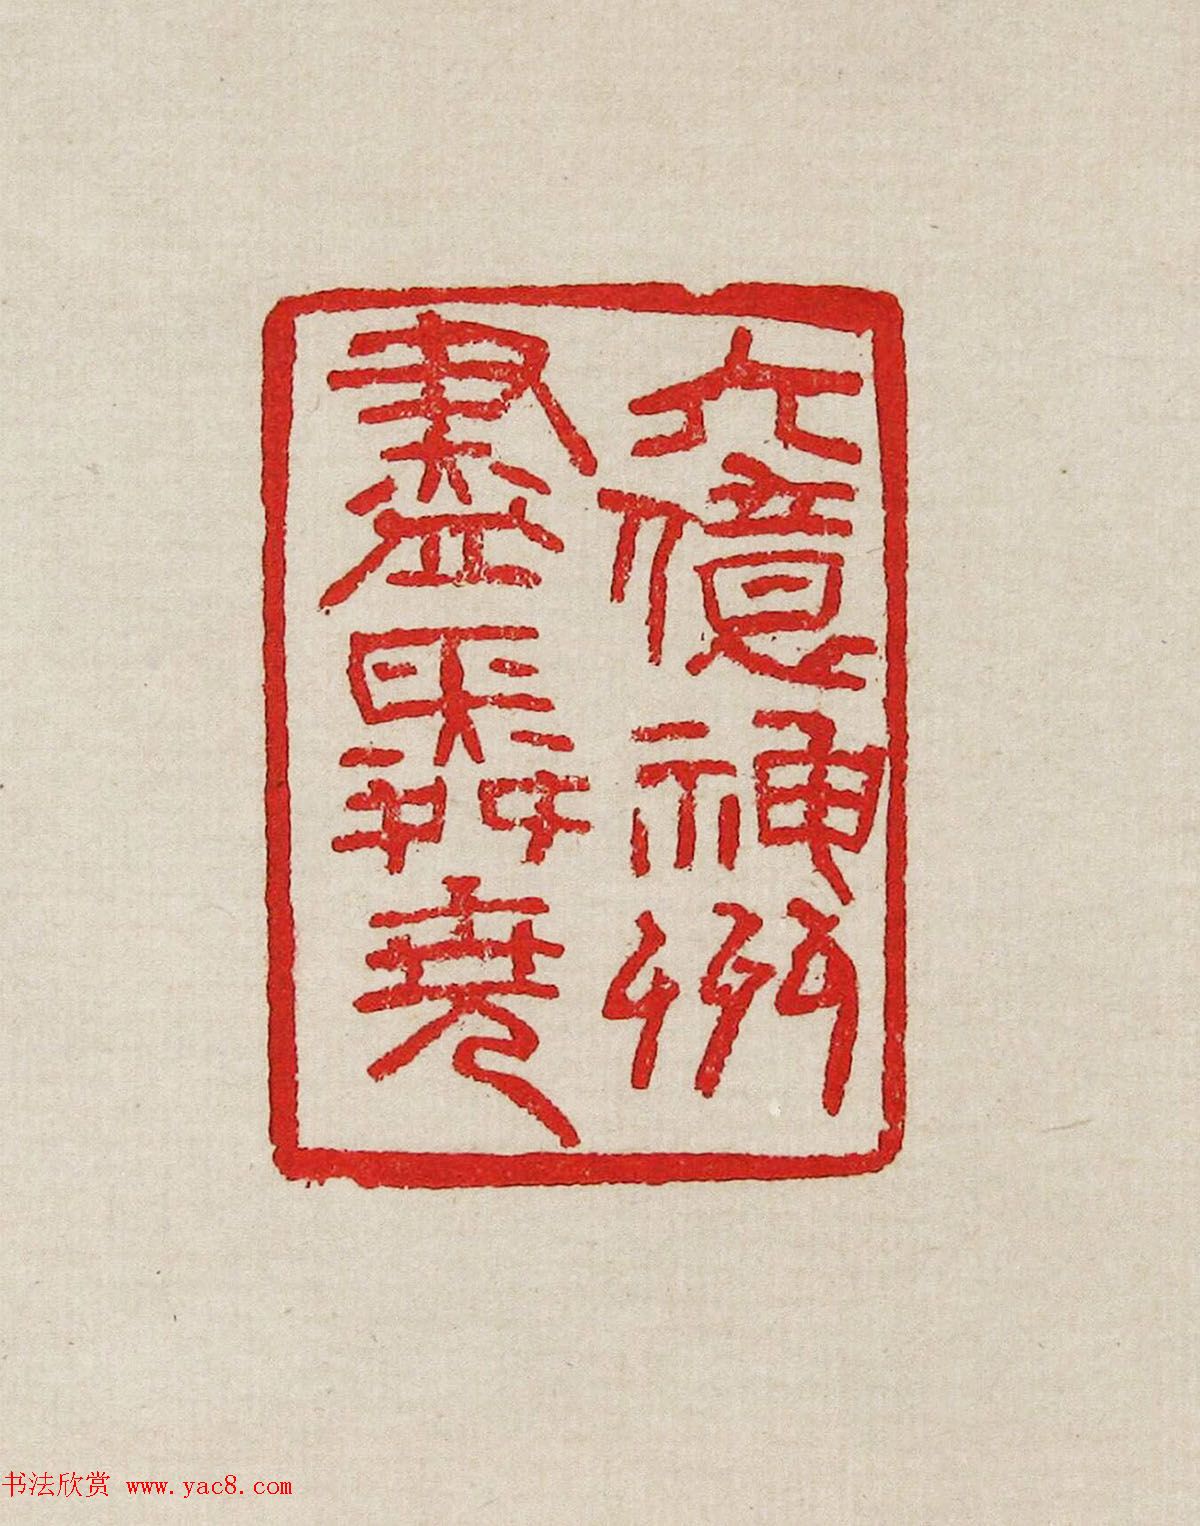 六億神州
盡舜堯
书法欣赏 www.yac8.com